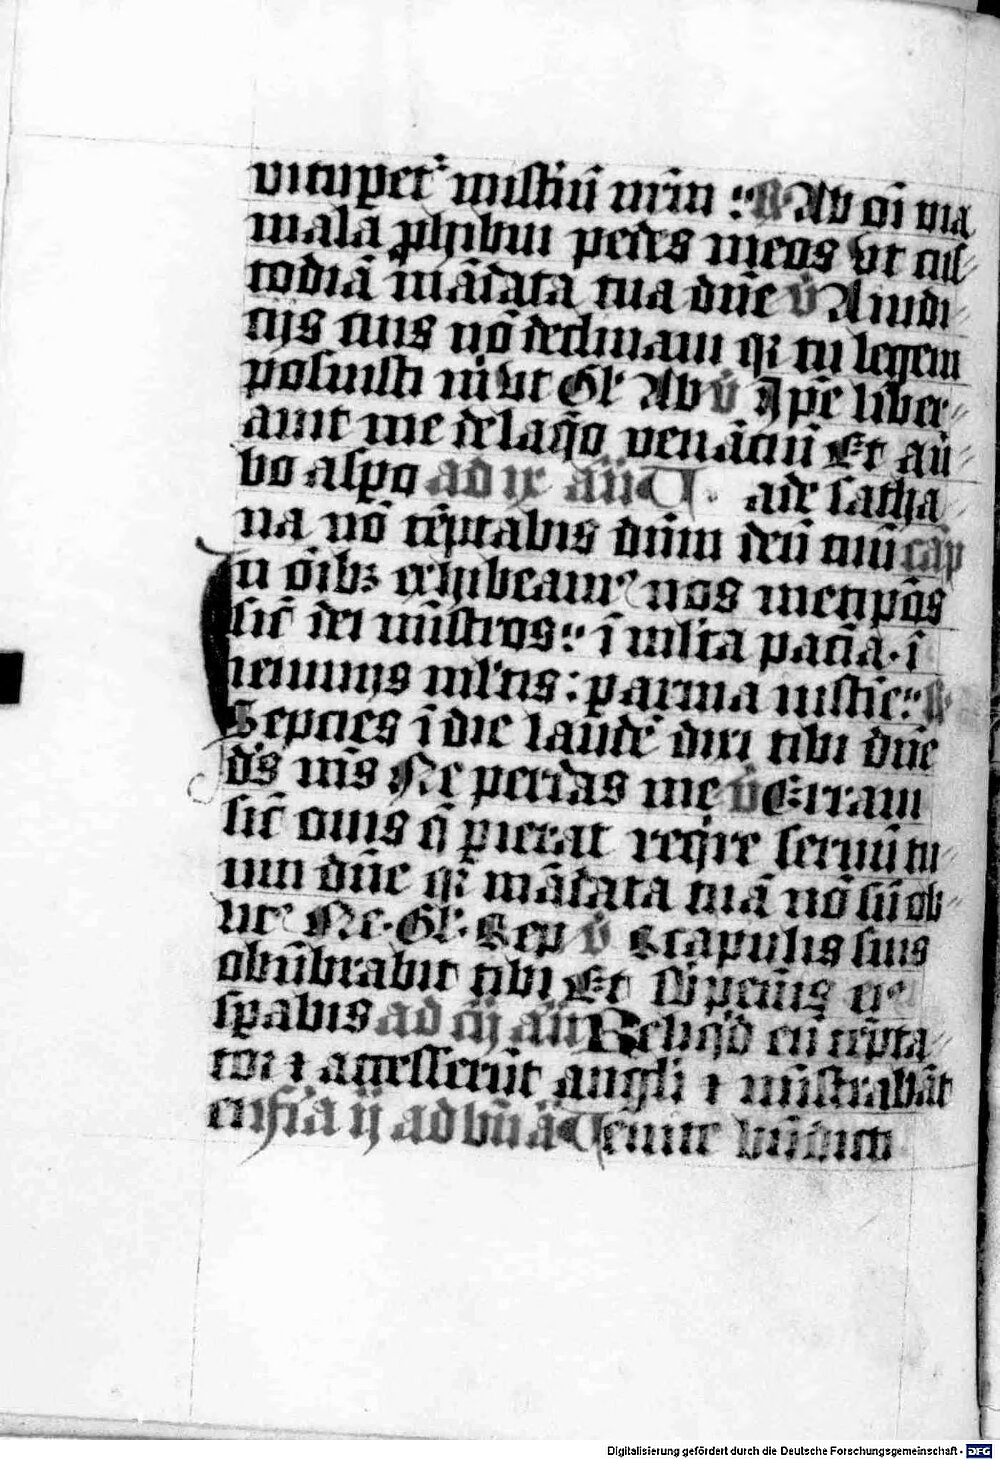 vitupet᷑ mistiu᷑ nr̄m : R Ab oī via
mala ꝓhibui pedes meos vt cus⸗
todiā mādata tua dn̄e v̊ A iudi⸗
cijs tuis nō declinaui qꝛ tu legem
posuisti m̄ vt Gl' Ab v̊ Ip̄e liber⸗
auit me de laq̄o venāciū Et a ṽ⸗
bo asꝑo ad ix an̄ Uade satha
na nō tēptabis dn̄m deū tuū cap
In oībꝫ exhibeam᷒ nos metip̄os
sic̄ dei mīstros : ī ml'ta paciā · ī
ieiunijs ml'tis : ꝑ arma iusticie : R
Sepcies ī die laudē dixi tibi dn̄e
ds̄ ms̄ Ne perdas me v̊ Erraui
sic̄ ouis q̄ ꝑierat reqire seruū tu⸗
um dn̄e qꝛ mādata tua nō sū ob⸗
lit᷒ Ne · Gl' · Sep v̊ Scapulis suis
obūbrabit tibi Et sb̄ pennis ei᷒
sꝑabis ad ij an̄ Reliqid eū tēpta⸗
tor ⁊ accesserūt angli ⁊ mīstrabāt
ei fīa ij ad bn̄ a᷑ Uenite bn̄dicti
Digitalisierung gefördert durch die Deutsche Forschungsgemeinschaft - DFG